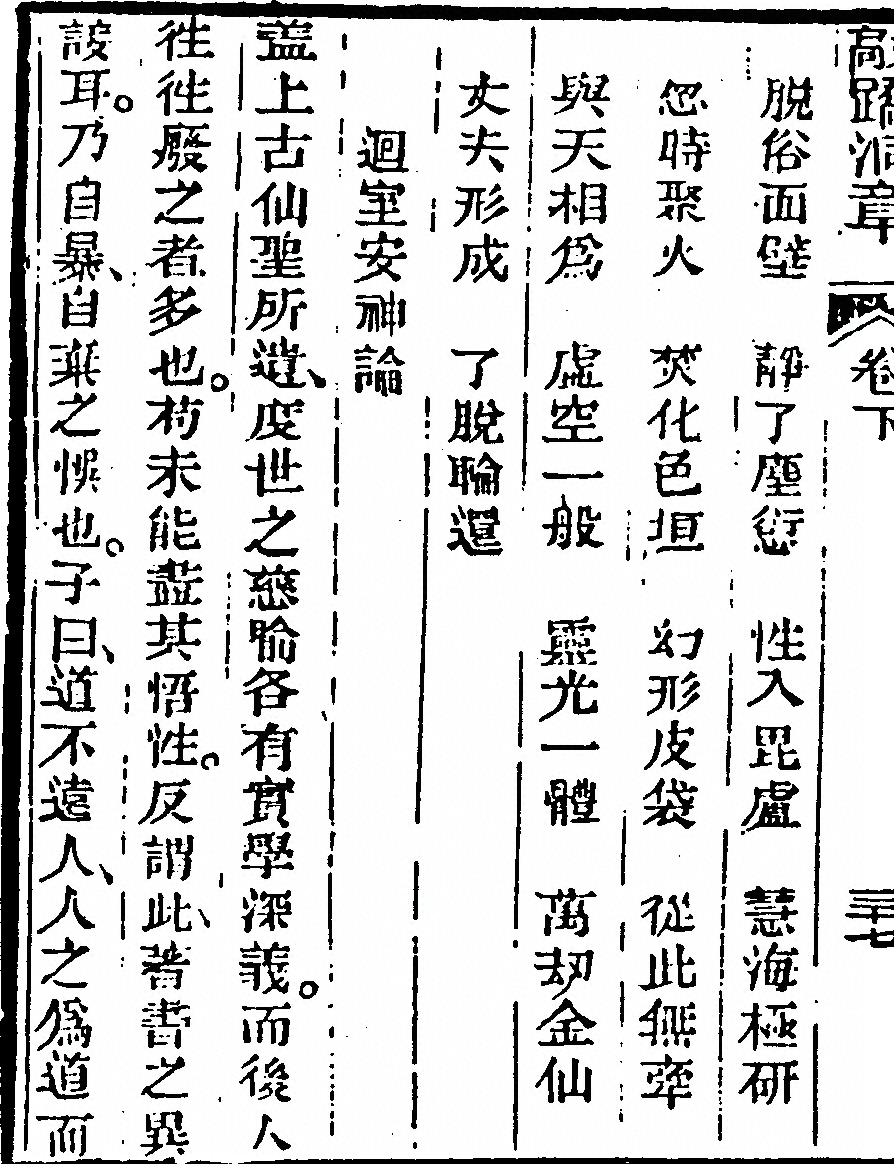 高蹻洞章 卷下 三十七
脫俗面壁 靜了塵愆 性入毘盧 慧海極研
忽時聚火 焚化色垣 幻形皮袋 從此無牽
與天相為 虛空一般 靈光一體 萬劫金仙
丈夫形成 了脫輪還
迴室安神論
蓋上古仙聖所遺、度世之慈喻各有實學深義。而後人
徃徃廢之者多也。茍未能盡其悟性。反謂此、著書之異
該耳。乃自暴、自棄之悞也。子曰、道不遠人、人之為道而